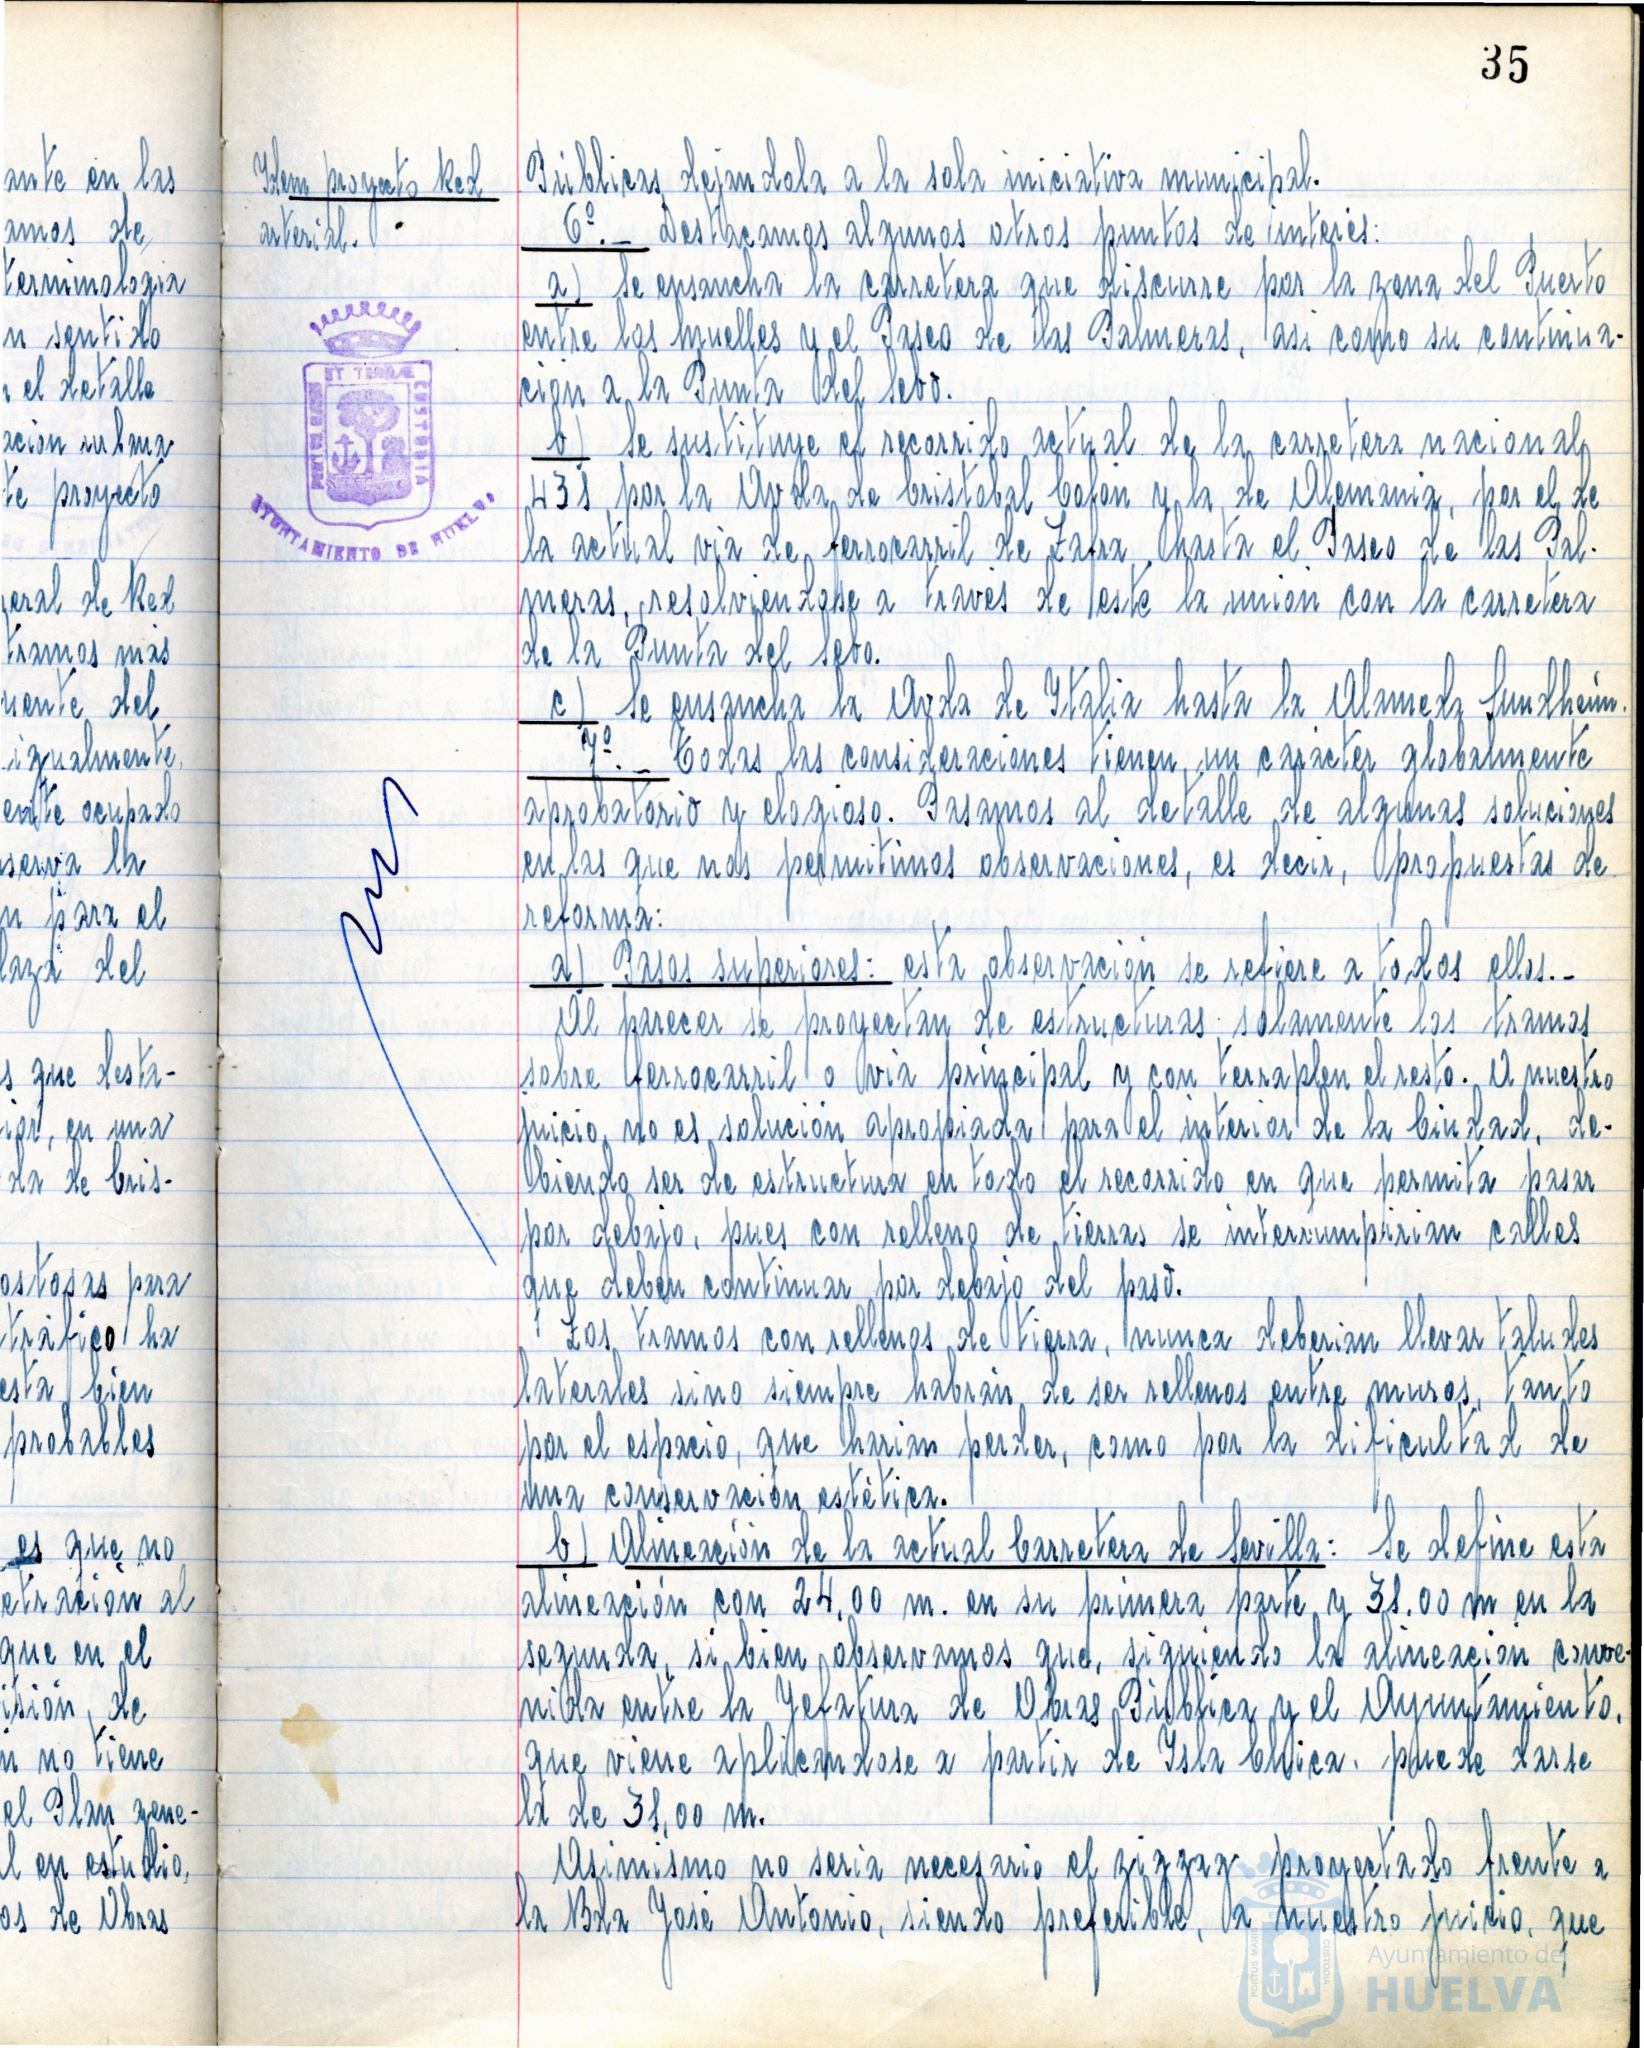 35
ante en las
amos de
terminologia
n sentido
el detalle
ación urbana
te proyecto
eral de Red
tramos más
mente del
igualmente,
ente ocupado
serva la
n para el
laza del
s que desta-
ior, en una
da de Cris-
ostosas para
tráfico ha
esta bien
probables
es que no
etración al
que en el
isión, de
n no tiene
el Plan gene-
l en estudio,
os de Obras
Idem proyecto Red
arterial.
ET TERRAE CUSTODIA
AYUNTAMIENTO DE HUELVA
Públicas dejandola a la sola iniciativa municipal.
6º.- Destacamos algunos otros puntos de interés:
a) Se ensancha la carretera que discurre por la zona del Puerto
entre los Muelles y el Paseo de las Palmeras, asi como su continua-
ción a la Punta del Sebo.
b) Se sustituye el recorrido actual de la carretera nacional
431 por la Avda de Cristobal Colón y la de Alemania, por el de
la actual via de ferrocarril de Zafra hasta el Paseo de las Pal-
meras, resolviendose a través de este la unión con la carretera
de la Punta del Sebo.
c) Se ensancha la Avda de Italia hasta la Alameda Sundheim.
7º.- Todas las consideraciones tienen un carácter globalmente
aprobatorio y elogioso. Pasamos al detalle de algunas soluciones
en las que nos permitimos observaciones, es decir, propuestas de
reforma:
a) Pasos superiores: esta observación se refiere a todos ellos.-
Al parecer se proyectan de estructuras solamente los tramos
sobre ferrocarril o via principal y con terraplen el resto. A nuestro
juicio, no es solución apropiada para el interior de la Ciudad, de-
biendo ser de estructura en todo el recorrido en que permita pasar
por debajo, pues con relleno de tierras se interrumpirian calles
que deben continuar por debajo del paso.
Los tramos con rellenos de tierra, nunca deberian llevar taludes
laterales sino siempre habrán de ser rellenos entre muros, tanto
por el espacio, que harian perder, como por la dificultad de
una conservación estética.
b) Alineación de la actual Carretera de Sevilla: Se define esta
alineación con 24,00 m. en su primera parte y 31.00 m en la
segunda, si bien observamos que, siguiendo la alineación conve-
nida entre la Jefatura de Obras Publica y el Ayuntamiento,
que viene aplicandose a partir de Isla Chica. puede darse
la de 31,00 m.
Asimismo no seria necesario el zigzag proyectado frente a
la Bda José Antonio, siendo preferible, a nuestro juicio, que
PORTUS MARIS
CUSTODIA
Ayuntamiento de
HUELVA